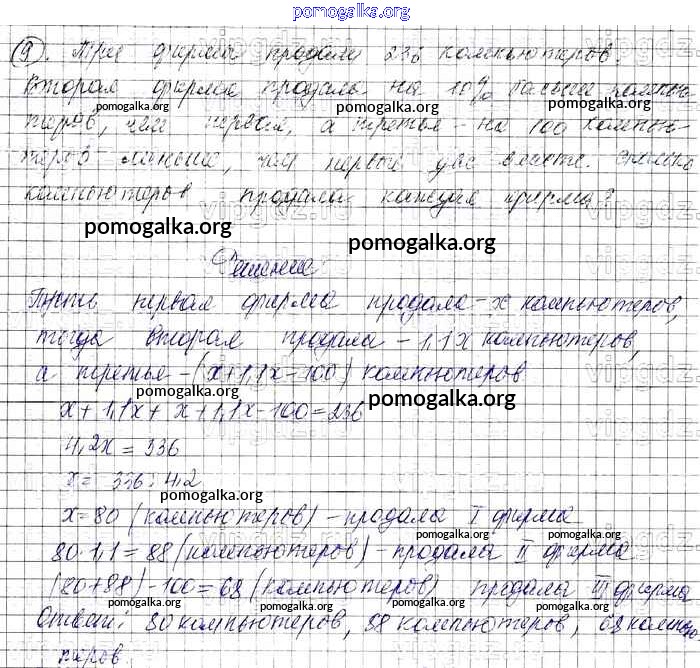 pomogalka.org
9. Три фирмы продали 236 компьютеров.
Вторая фирма продала на 10% больше компью-
pomogalka.org pomogalka.org
теров, чем первая, а третья - на 100 компью-
теров меньше, чем первые две вместе. Сколько
компьютеров продала каждая фирма?
pomogalka.org
pomogalka.org
Решение
Пусть первая фирма продала - x компьютеров,
тогда вторая продала - 1,1x компьютеров,
а третья - (x+1,1x-100) компьютеров
pomogalka.org
pomogalka.org
x+1,1x+x+1,1x-100=236
4,2x=336
x=336:4,2
pomogalka.org
x=80 (компьютеров) - продала I фирма
pomogalka.org pomogalka.org
80·1,1=88 (компьютеров) - продала II фирма
pomogalka.org
(80+88)-100=68 (компьютеров) продала III фирма
pomogalka.org pomogalka.org pomogalka.org
Ответ: 80 компьютеров, 88 компьютеров, 68 компью-
pomogalka.org pomogalka.org
теров.